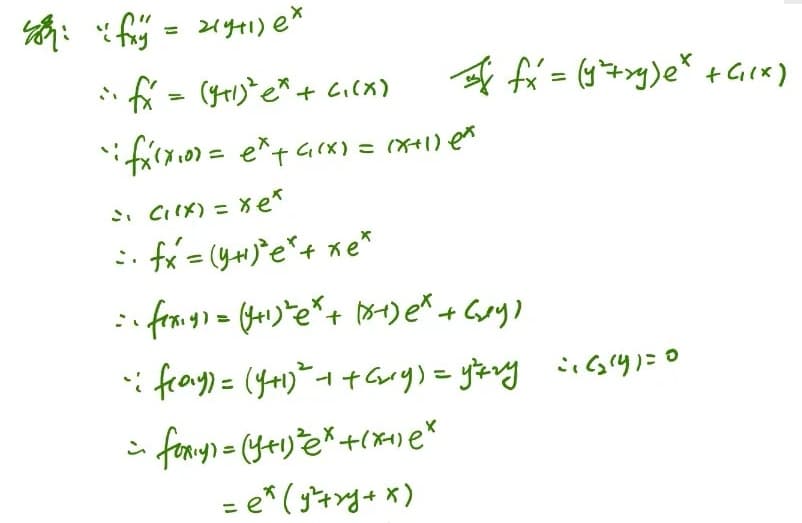 解: ∵ f''xy = 2(y+1)e^x
∴ f'x = (y+1)²e^x + C₁(x) 或 f'x = (y²+2y)e^x + C₁(x)
∵ f'x(x,0) = e^x + C₁(x) = (x+1)e^x
∴ C₁(x) = xe^x
∴ f'x = (y+1)²e^x + xe^x
∴ f(x,y) = (y+1)²e^x + (x-1)e^x + C₂(y)
∵ f(0,y) = (y+1)² -1 + C₂(y) = y²+2y ∴ C₂(y) = 0
∴ f(x,y) = (y+1)²e^x + (x-1)e^x
= e^x(y²+2y+x)